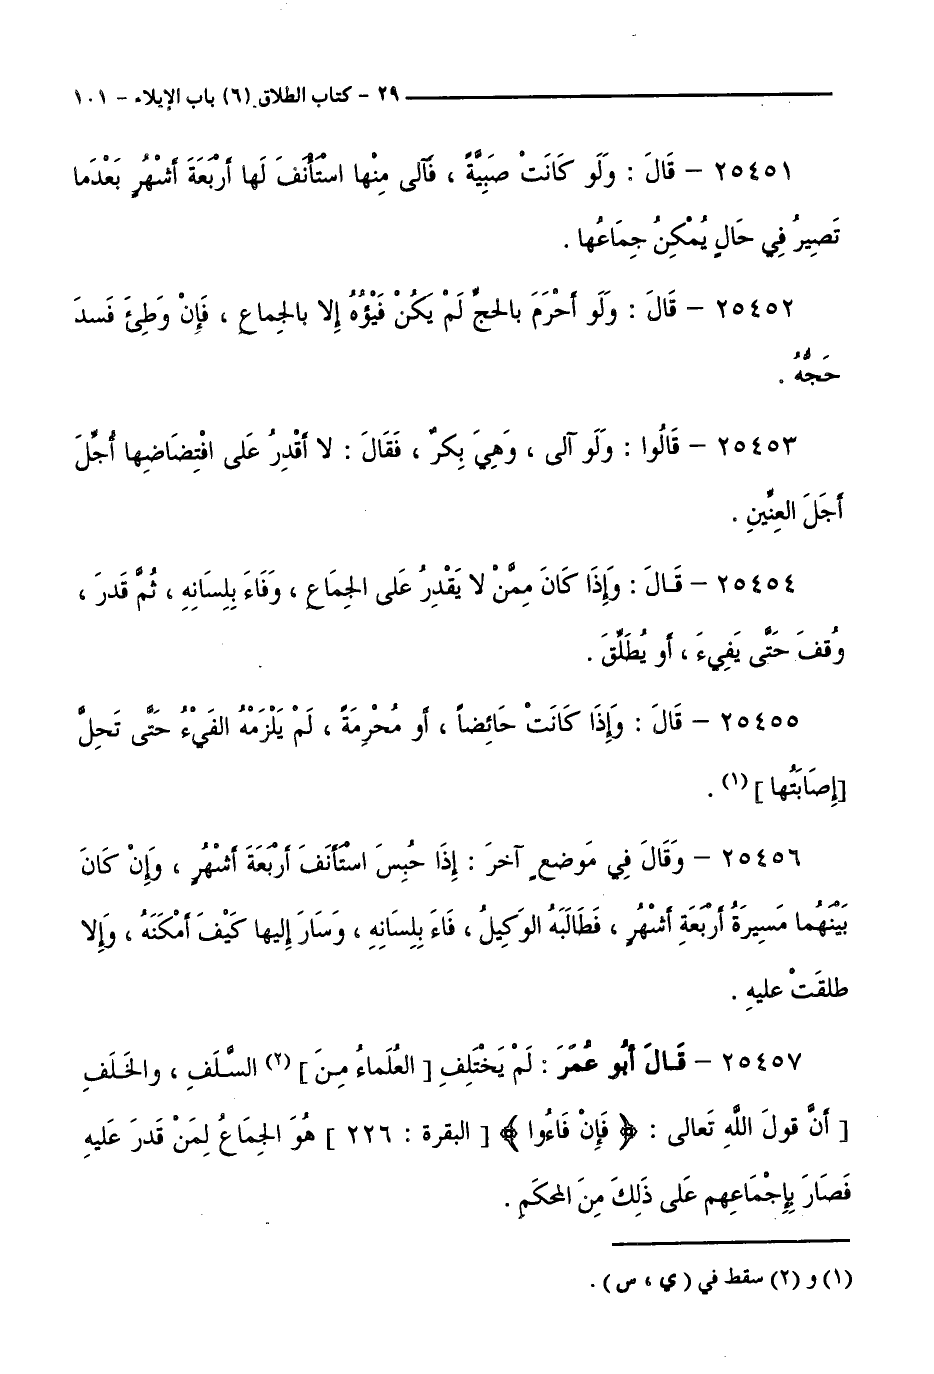 ٢٩ - كتاب الطلاق (٦) باب الإيلاء - ١٠١
٢٥٤٥١ - قَالَ : وَلَو كَانَتْ صَبِيَّةً ، فَآلى مِنْها اسْتَأْنَفَ لَها أَرْبَعَةَ أَشْهُرٍ بَعْدَمَا
تَصِيرُ فِي حَالٍ يُمْكِنُ جِمَاعُها .
٢٥٤٥٢ - قَالَ : وَلَو أَحْرَمَ بالحَجِّ لَمْ يَكُنْ فَيْؤُهُ إِلا بالجِماعِ ، فَإِنْ وَطِئَ فَسدَ
حَجُّهُ .
٢٥٤٥٣ - قَالُوا : وَلَو آلى ، وَهِيَ بِكرٌ ، فَقَالَ : لا أَقْدِرُ عَلى افْتِضَاضِها أُجِّلَ
أَجَلَ العِنِّينِ .
٢٥٤٥٤ - قَالَ : وَإِذَا كَانَ مِمَّنْ لا يَقْدِرُ عَلى الجِمَاعِ ، وَفَاءَ بِلِسَانِهِ ، ثُمَّ قَدرَ ،
وُقفَ حَتَّى يَفِيءَ ، أَو يُطَلِّقَ .
٢٥٤٥٥ - قَالَ : وَإِذَا كَانَتْ حَائِضاً ، أَو مُحْرِمَةً ، لَمْ يَلْزَمْهُ الفَيْءُ حَتَّى تَحِلَّ
[إِصَابَتُها ] (١) .
٢٥٤٥٦ - وَقَالَ فِي مَوضعٍ آخرَ : إِذَا حُبِسَ اسْتَأْنَفَ أَرْبَعَةَ أَشْهُرٍ ، وَإِنْ كَانَ
بَيْنَهُما مَسِيرَةُ أَرْبَعَةِ أَشْهُرٍ ، فَطَالَبَهُ الوَكِيلُ ، فَاءَ بِلِسَانِهِ ، وَسَارَ إِليها كَيْفَ أَمْكَنَهُ ، وَإِلا
طلقَتْ عليهِ .
٢٥٤٥٧ - قَالَ أَبُو عُمَرَ : لَمْ يَخْتَلِفِ [ العُلَماءُ مِنَ ] (٢) السَّلَفِ ، والخَلَفِ
[ أَنَّ قولَ اللَّهِ تَعالى : ﴿ فَإِنْ فَاءُوا ﴾ [ البقرة : ٢٢٦ ] هُوَ الجِمَاعُ لِمَنْ قَدرَ عَليهِ
فَصَارَ بِإِجْمَاعِهم عَلى ذَلِكَ مِنَ المُحكَمِ .
(١) و (٢) سقط في ( ي ، س ) .